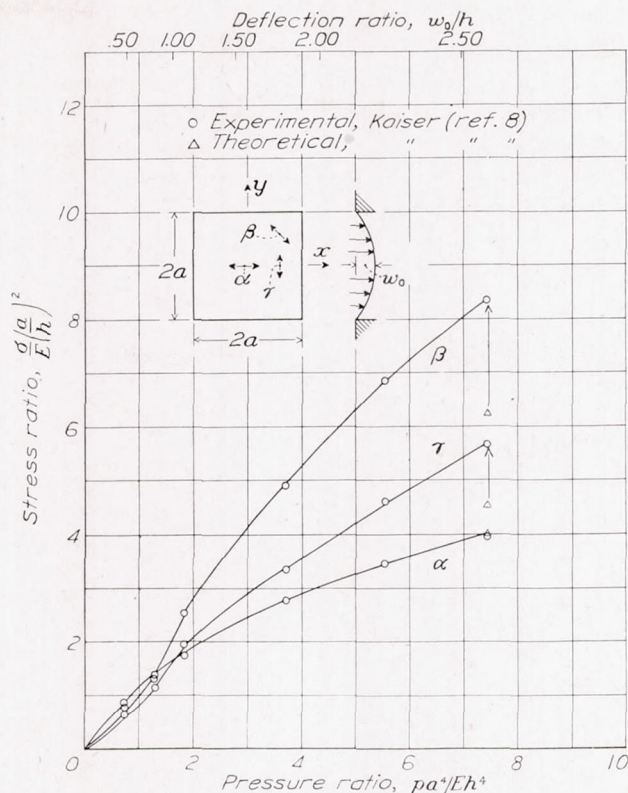 Deflection ratio, w₀/h
.50 1.00 1.50 2.00 2.50
12
○ Experimental, Kaiser (ref. 8)
△ Theoretical, " " "
y
10
β
2a
α
γ
x
w₀
8
2a
β
Stress ratio, σ/E (a/h)²
6
γ
4
α
2
0 2 4 6 8 10
Pressure ratio, pa⁴/Eh⁴